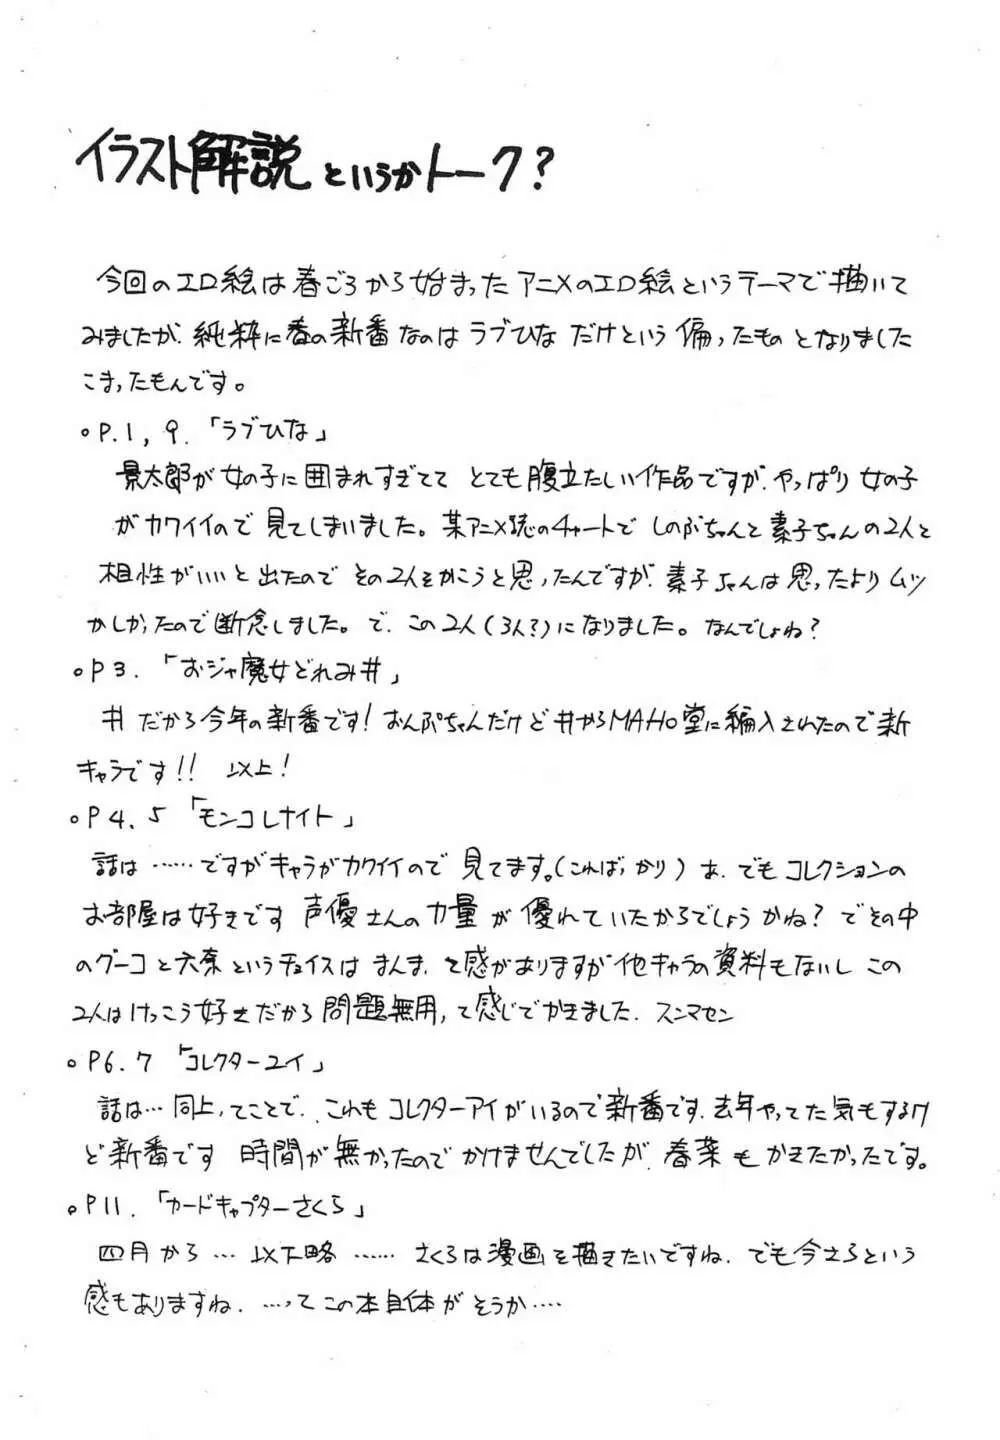 イラスト解説というかトーク?
今回のエロ絵は春ごろから始まったアニメのエロ絵というテーマで描いて
みましたが、純粋に春の新番なのはラブひなだけという偏ったものとなりました
こまったもんです。
○P.1,9.「ラブひな」
景太郎が女の子に囲まれすぎててとても腹立たしい作品ですが、やっぱり女の子
がカワイイので見てしまいました。某アニメ誌のチャートでしのぶちゃんと素子ちゃんの2人と
相性がいいと出たのでその2人をかこうと思ったんですが、素子ちゃんは思ったよりムツ
かしかったので断念しました。で、この2人(3人?)になりました。なんでしょね?
○P3.「おジャ魔女どれみ#」
#だから今年の新番です!おんぷちゃんだけど#からMAHO堂に編入されたので新
キャラです!! 以上!
○P4.5「モンコレナイト」
話は……ですがキャラがカワイイので見てます。(こればっかり)あ、でもコレクションの
お部屋は好きです 声優さんの力量が優れていたからでしょうかね?でその中
のグーコと六奈というチョイスはまんまって感がありますが他キャラの資料もないしこの
2人はけっこう好きだから問題無用って感じでかきました.スンマセン
○P6.7「コレクターユイ」
話は…同上ってことで.これもコレクターアイがいるので新番です.去年やってた気もするけ
ど新番です 時間が無かったのでかけませんでしたが、春菜もかきたかったです。
○P11.「カードキャプターさくら」
四月から…以下略……さくらは漫画を描きたいですね.でも今さらという
感もありますね.…ってこの本自体がそうか….